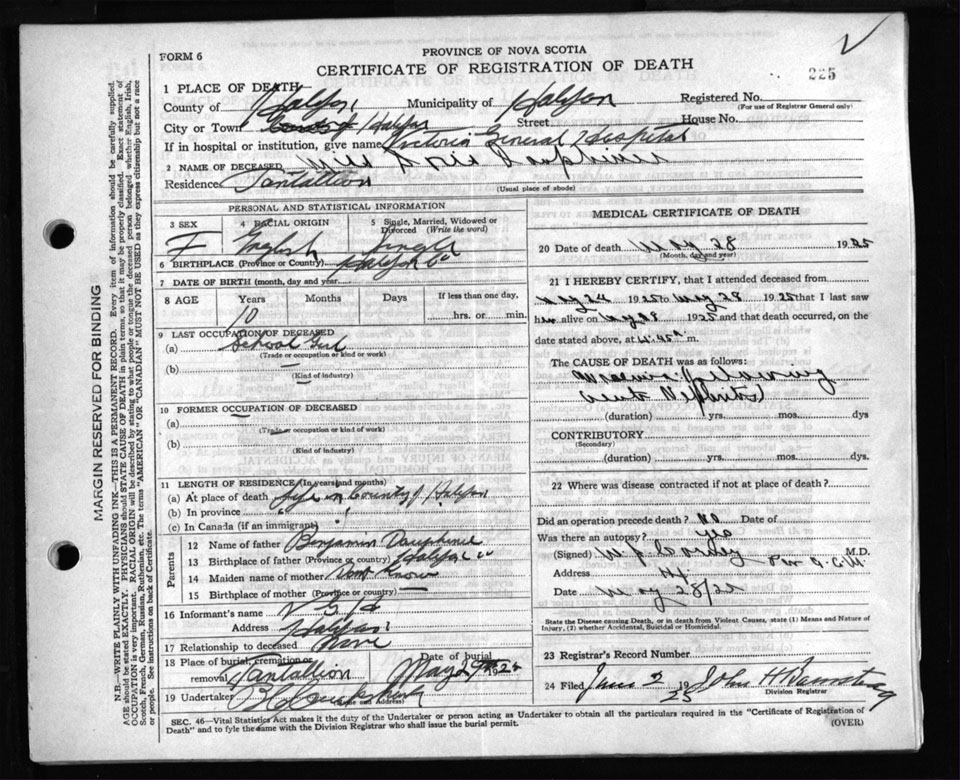 FORM 6
PROVINCE OF NOVA SCOTIA
CERTIFICATE OF REGISTRATION OF DEATH
225
1 PLACE OF DEATH—
County of Halifax Municipality of Halifax Registered No.
(For use of Registrar General only)
City or Town Halifax Street House No.
If in hospital or institution, give name Victoria General Hospital
2 NAME OF DECEASED Miss Doris Dauphinee
Residence Tantallion
(Usual place of abode)
PERSONAL AND STATISTICAL INFORMATION
3 SEX
F
4 RACIAL ORIGIN
English
5 Single, Married, Widowed or Divorced (Write the word)
Single
6 BIRTHPLACE (Province or Country) Halifax Co
7 DATE OF BIRTH (month, day and year)
8 AGE Years Months Days If less than one day,
10 hrs. or min.
9 LAST OCCUPATION OF DECEASED
(a) School Girl
(Trade or occupation or kind or work)
(b)
(Kind of industry)
10 FORMER OCCUPATION OF DECEASED
(a)
(Trade or occupation or kind of work)
(b)
(Kind of industry)
11 LENGTH OF RESIDENCE (In years and months)
(a) At place of death Life in County of Halifax
(b) In province " "
(c) In Canada (if an immigrant)
Parents
12 Name of father Benjamin Dauphinee
13 Birthplace of father (Province or country) Halifax Co
14 Maiden name of mother Dont Know
15 Birthplace of mother (Province or country) —
16 Informant's name V G H
Address Halifax
17 Relationship to deceased None
18 Place of burial, cremation or removal Tantallion
Date of burial
May 29th 1925
19 Undertaker
(Name and Address)
MEDICAL CERTIFICATE OF DEATH
20 Date of death May 28 1925
(Month, day and year)
21 I HEREBY CERTIFY, that I attended deceased from
May 24 1925 to May 28 1925 that I last saw
her alive on May 28 1925 and that death occurred, on the
date stated above, at m.
The CAUSE OF DEATH was as follows:
Acute Nephritis
(duration) yrs. mos. dys
CONTRIBUTORY
(Secondary)
(duration) yrs. mos. dys.
22 Where was disease contracted if not at place of death?
Did an operation precede death? No Date of
Was there an autopsy? Yes
(Signed) M.D.
Address
Date May 28/25
State the Disease causing Death, or in death from Violent Causes, state (1) Means and Nature of Injury, (2) whether Accidental, Suicidal or Homicidal.
23 Registrar's Record Number
24 Filed June 2 1925 John H Barnstead
Division Registrar
SEC. 46—Vital Statistics Act makes it the duty of the Undertaker or person acting as Undertaker to obtain all the particulars required in the "Certificate of Registration of
Death" and to fyle the same with the Division Registrar who shall issue the burial permit. (OVER)
MARGIN RESERVED FOR BINDING
N.B.—WRITE PLAINLY WITH UNFADING INK—THIS IS A PERMANENT RECORD. Every item of information should be carefully supplied.
AGE should be stated EXACTLY. PHYSICIANS should STATE CAUSE OF DEATH in plain terms, so that it may be properly classified. Exact statement of
OCCUPATION is very important. RACIAL ORIGIN will be described by stating to what people or tongue the deceased person belonged whether English, Irish,
Scotch, French, German, Russian, Ruthenian, etc. The terms "AMERICAN" or "CANADIAN" MUST NOT BE USED as they express citizenship but not a race
or people. See instructions on back of Certificate.